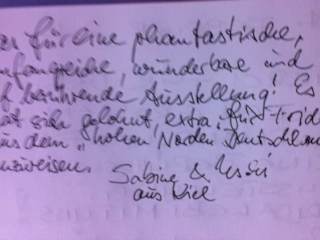 für eine phantastische,
umfangreiche, wunderbare und
berührende Ausstellung! Es
hat sich gelohnt, extra für Frida
aus dem "hohen" Norden Deutschland
anzureisen.
Sabine &
aus Kiel